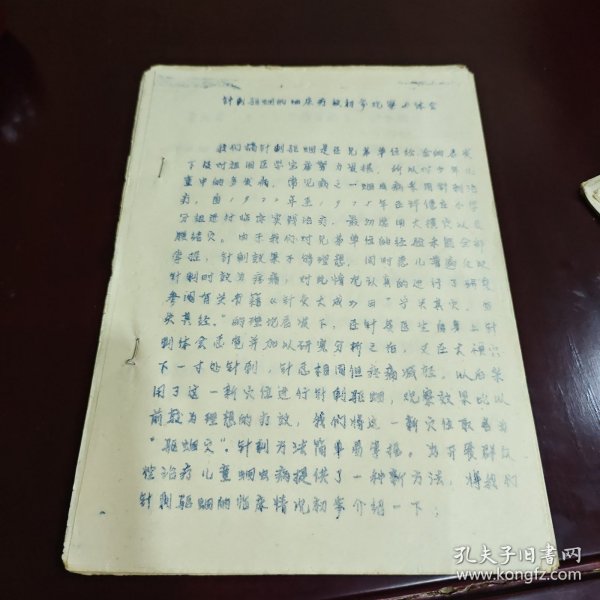 针刺驱蛔的临床疗效初步观察与体会
我们搞针刺驱蛔是在兄弟单位经验的启发
下及对祖国医学宝库努力发掘，所以对少年儿
童中的多发病，常见病之一蛔虫病采用针刺治
疗，自1977年至1978年在小学
分组进行临床实践治疗，最初应用大横穴以及
由于我们对兄弟单位的经验未能全部
掌握，针刺效果不够理想，同时患儿普遍反映
针刺时较为疼痛，对此情况认真的进行了研究
参阅有关书籍《针灸大成》曰“宁失其穴，勿
失其经。”的理论启发下，在针等医生自身上针
刺体会感觉并加以研究分析之后，又在大横穴
下一寸处针刺，针感相同但疼痛减轻，以后采
用了这一新穴位进行针刺驱蛔，观察效果比以
前较为理想的疗效，我们将这一新穴位取名为
“驱蛔穴”。针刺方法简单易掌握。为开展群众
性治疗儿童蛔虫病提供了一种新方法，将我们
针刺驱蛔的临床情况初步介绍一下：
孔夫子旧书网
www.kongfz.com